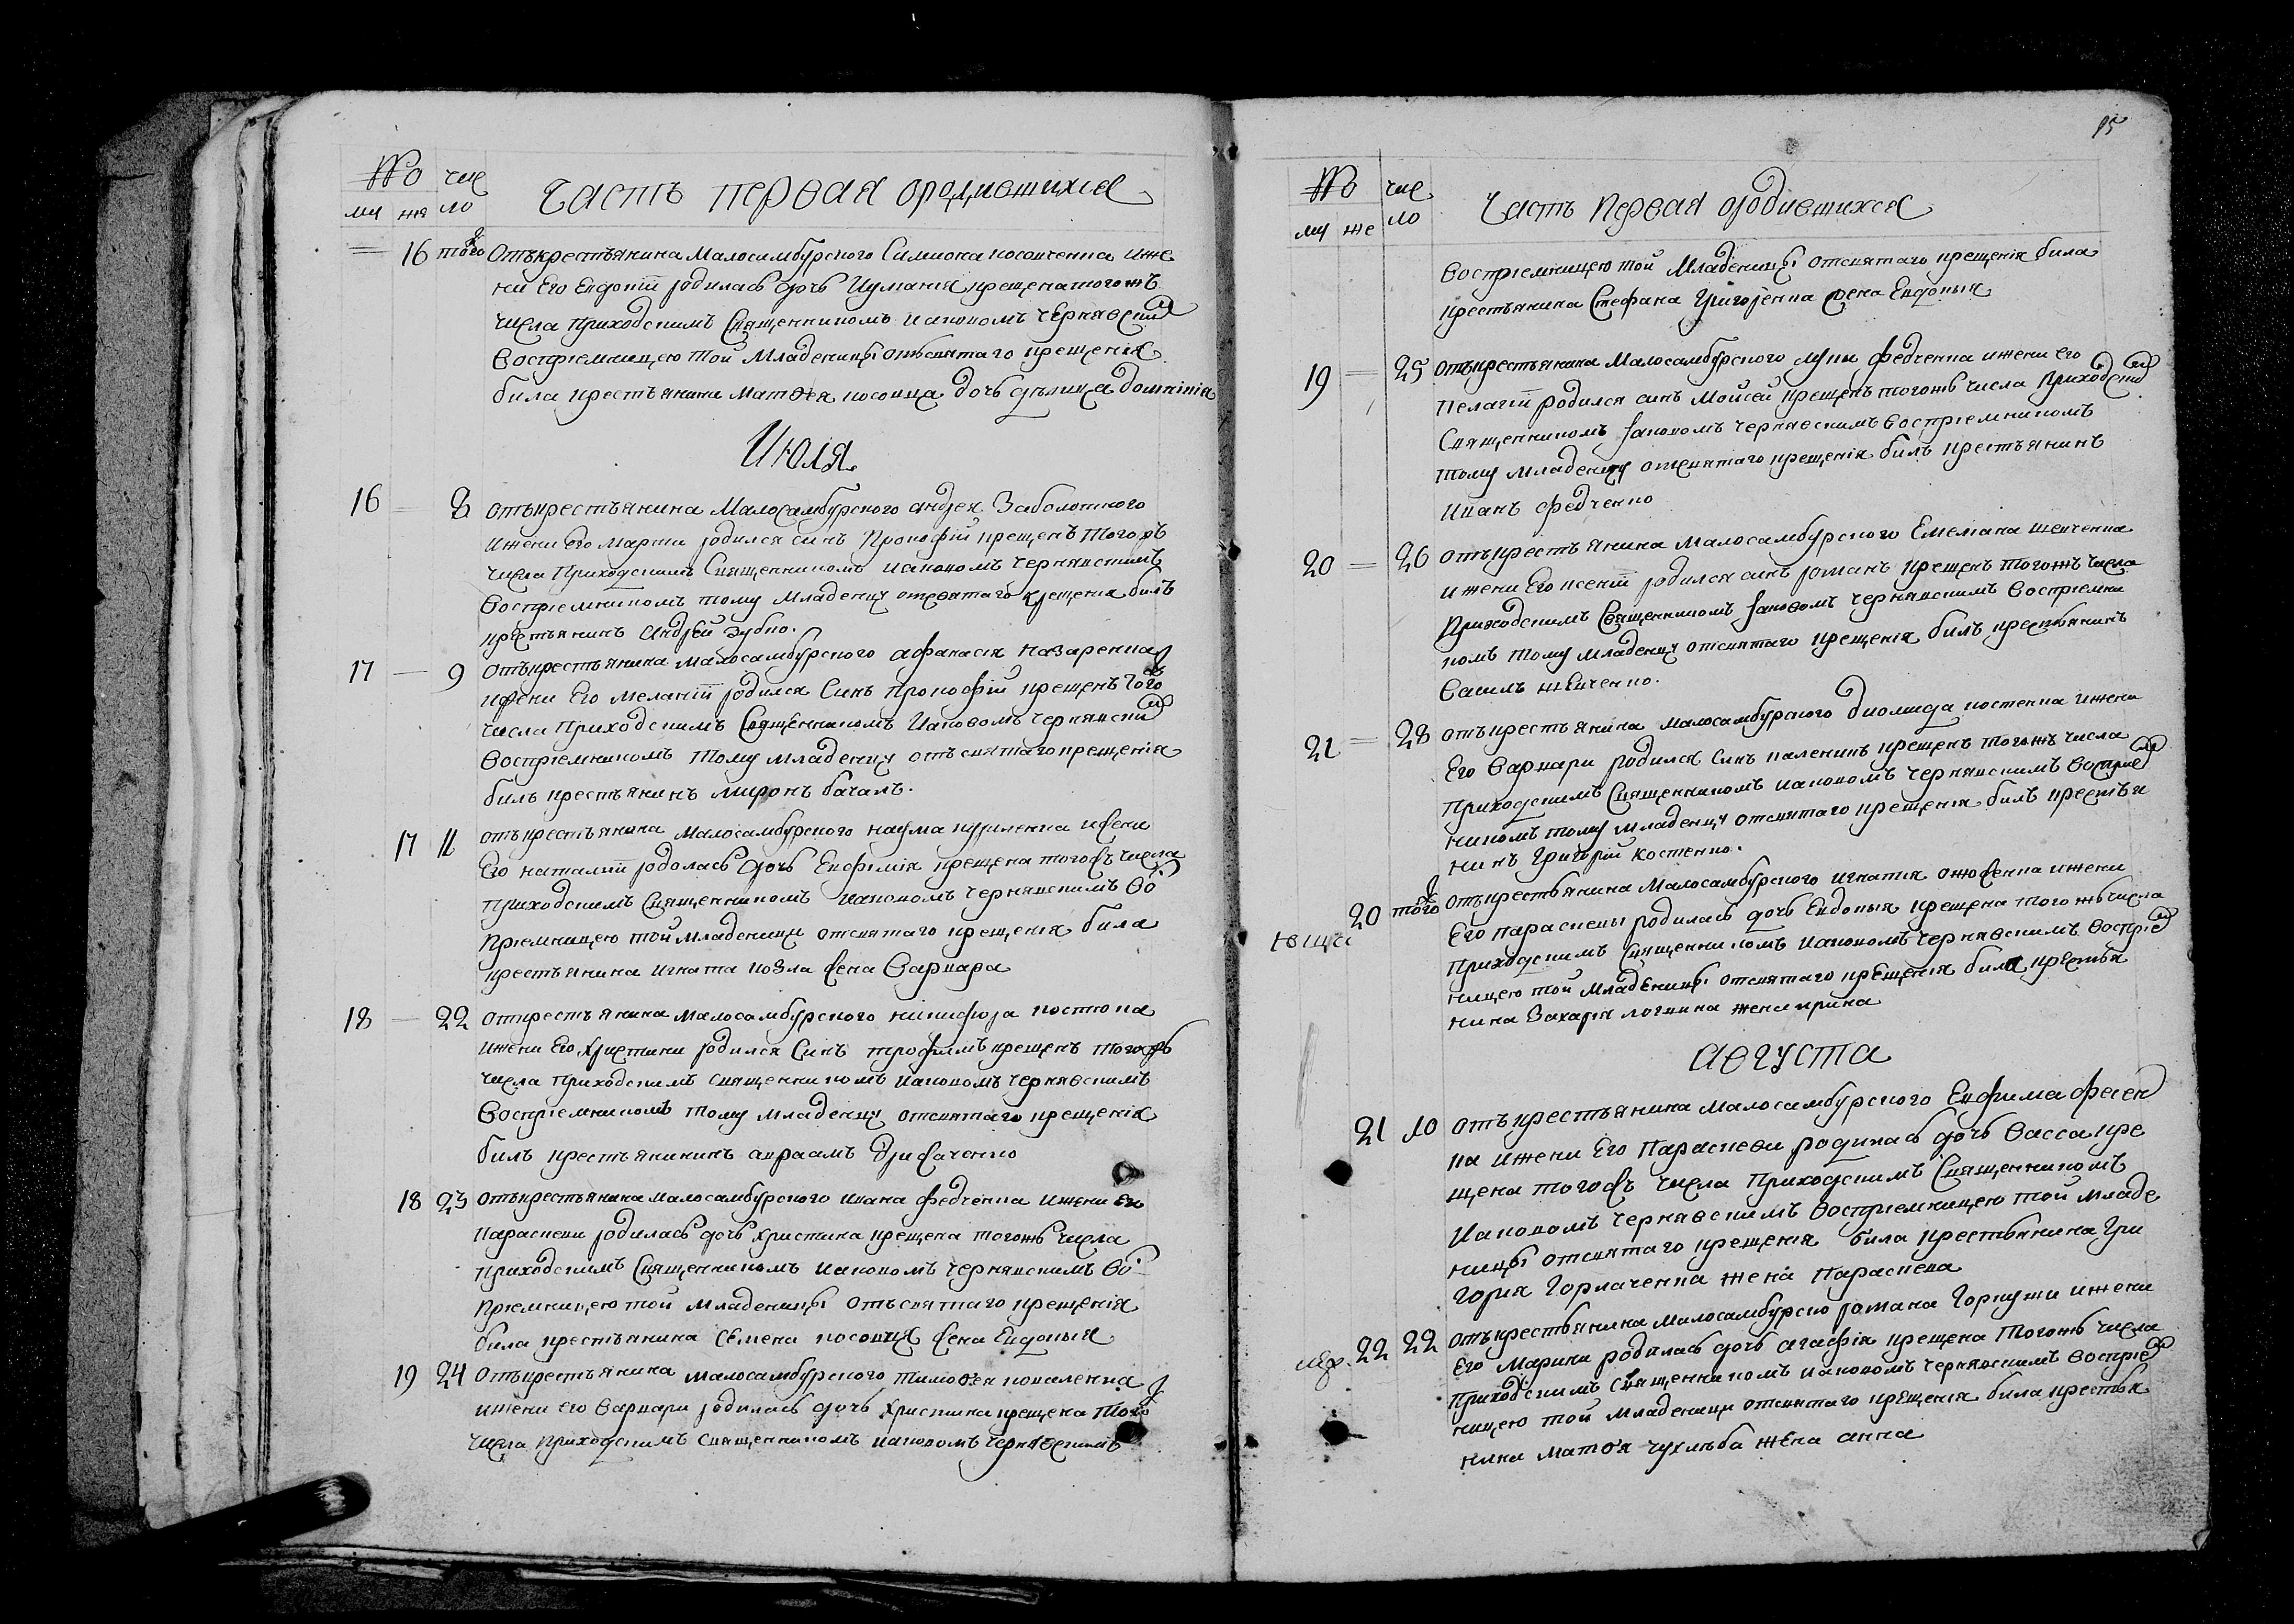 № чис
Часть первая ородившихся
му же ло
16 того Отъ крестьянина Малосамбурского Симиона носовченка и же
ни Его Евдокіи родилась дочь Иуманія крещена тогожъ
числа Приходскимъ Священникомъ Иаковомъ Чернявским
Воспріемницею той Младеницы отъ святаго крещенія
била крестьянина Матѳея носовца дочь дѣвица Домникія
Июля
16 8 отъ крестьянина Малосамбурского андрея Заболотного
и жени его Марфи родился синъ Прокофій крещенъ тогожъ
числа Приходскимъ Священникомъ Иаковомъ Чернявскимъ
Воспріемникомъ тому Младенцу отсвятаго крещенія билъ
крестьянинъ Андрей Зубко.
17 9 отъ крестьянина Малосамбурского афанасія Назаренка
и жени Его Меланіи родился Синъ Прокофій крещенъ того ж
числа Приходскимъ Священникомъ Иаковомъ Чернявским
Воспріемникомъ тому младенцу отъ святаго крещенія
билъ крестьянинъ миронъ бачалъ.
17 11 отъ крестьянина Малосамбурского наума куриленка и жени
Его наталіи родолась дочь Евфимія крещена тогожъ числа
Приходскимъ Священникомъ Иаковомъ Чернявскимъ Вос
пріемницею той Младеници отсвятаго крещенія била
крестьянина Игната козла жена Варвара
18 22 от крестьянина Малосамбурского никифора костюка
и жени Его Христини родился Синъ трофимъ крещенъ тогожъ
числа Приходскимъ священникомъ Иаковомъ Чернявскимъ
Воспріемникомъ тому младенцу отсвятаго крещенія
билъ крестьянининъ авраамъ
18 23 отъ крестьянина Малосамбурского Ивана федченка и жени его
Параскеви родилась дочь Христина крещена тогожъ числа
Приходскимъ Священникомъ Иаковомъ Чернявскимъ Вос
пріемницею той Младеницы отъ святаго крещенія
била крестьянина Семена носовця жена Евдокія
19 24 отъ крестьянина Малосамбурского тимоѳея коваленка
и жени его Варвари родилась дочь Христина крещена того ж
числа Приходскимъ священникомъ Иаковомъ Чернявскимъ
15
№ чис
Часть Первая ородившихся
му же ло
Воспріемницею той Младеницы отсвятаго крещенія била
крестьянина Стефана Григоренка жена Евдокія
19 25 отъ крестьянина Малосамбурского луки федченка и жени его
Пелагіи родился синъ Мойсей крещенъ тогожъ числа Приходским
Священникомъ Іаковомъ Чернявскимъ Воспріемникомъ
тому Младенцу отсвятаго крещенія билъ крестьянинъ
Иванъ федченко
20 26 отъ крестьянина Малосамбурского Емелиана шевченка
и жени Его ксеніи родился синъ романъ крещенъ тогожъ числа
Приходскимъ Священникомъ Іаковомъ Чернявскимъ Воспріемни
комъ тому младенцу отсвятаго крещенія билъ крестьянинъ
Василь шевченко.
21 28 отъ крестьянина Малосамбурского диомида костенка и жени
Его Варвари родился Синъ каленикъ крещенъ тогожъ числа
Приходскимъ Священникомъ Иаковомъ Чернявскимъ Воспріем
никомъ тому Младенцу отсвятаго крещенія билъ крестья
нинъ Григорій Костенко.
20 того отъ крестьянина Малосамбурского игнатія ожоженка и жени
Его параскевы родилась дочь Евдокія крещена того жъ числа
Приходскимъ Священникомъ Иаковомъ Чернявскимъ Воспріем
ницею той Младеницы отсвятаго крещенія била крестья
нина Захарія логвина жена ирина
Августа
21 10 отъ крестьянина Малосамбурского Евфима фесен
ка и жени Его Параскеви родилась дочь Васса кре
щена тогожъ числа Приходскимъ Священникомъ
Иаковомъ Чернявскимъ Воспріемницею той младе
ницы отсвятаго крещенія била крестьянина Гри
горія Горлаченка жена Параскева
22 22 отъ крестьянина Малосамбурско романа Горкуши и жени
Его Марини родилась дочь агафія крещена тогожъ числа
Приходскимъ Священникомъ Иаковомъ Чернявскимъ Воспріем
ницею той Младеници отсвятаго крещенія била крестья
нина Матѳя чухлѣба жена анна